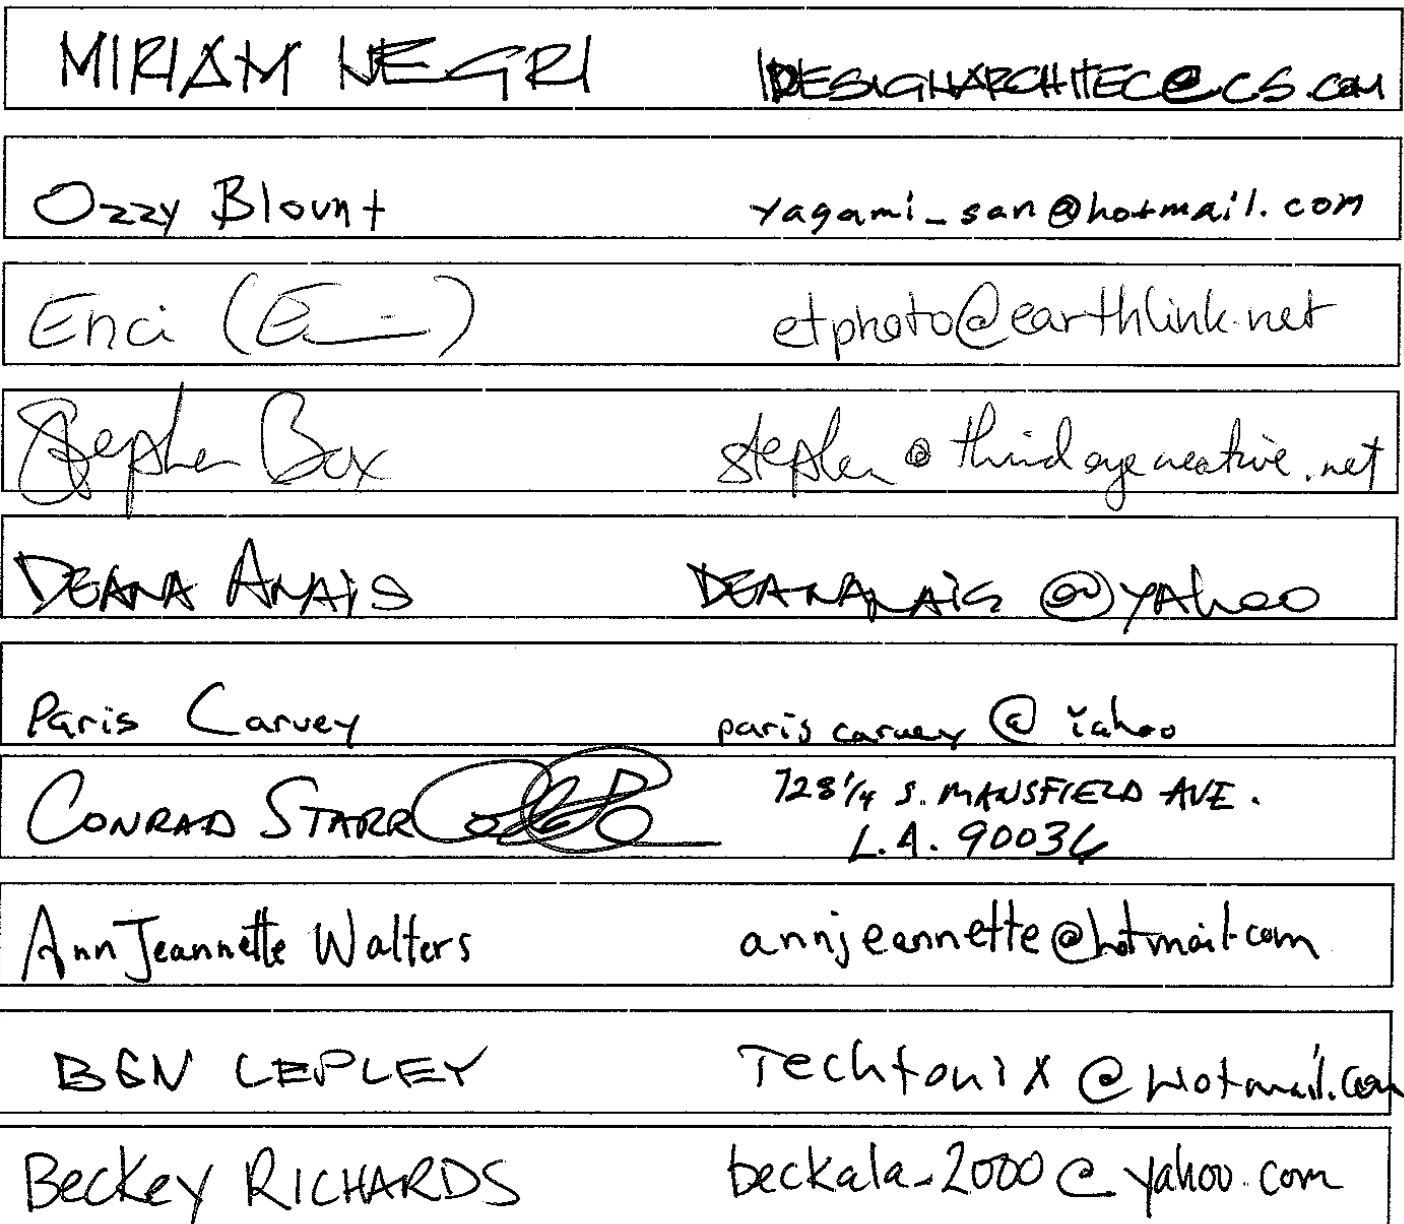 MIRIAM NEGRI DESIGNARCHITEC@CS.COM
Ozzy Blount yagami_san@hotmail.com
Enci (E) etphoto@earthlink.net
Stephen Box stephen@thirdeyecreative.net
DEANA ANAIS DEANANAIS @YAhoo
Paris Carvey paris carvey @ yahoo
CONRAD STARR 728 1/4 S. MANSFIELD AVE.
L.A. 90036
Ann Jeannette Walters annjeannette@hotmail.com
BEN LEPLEY Techtonix @ Hotmail.com
Beckey RICHARDS beckala_2000@yahoo.com